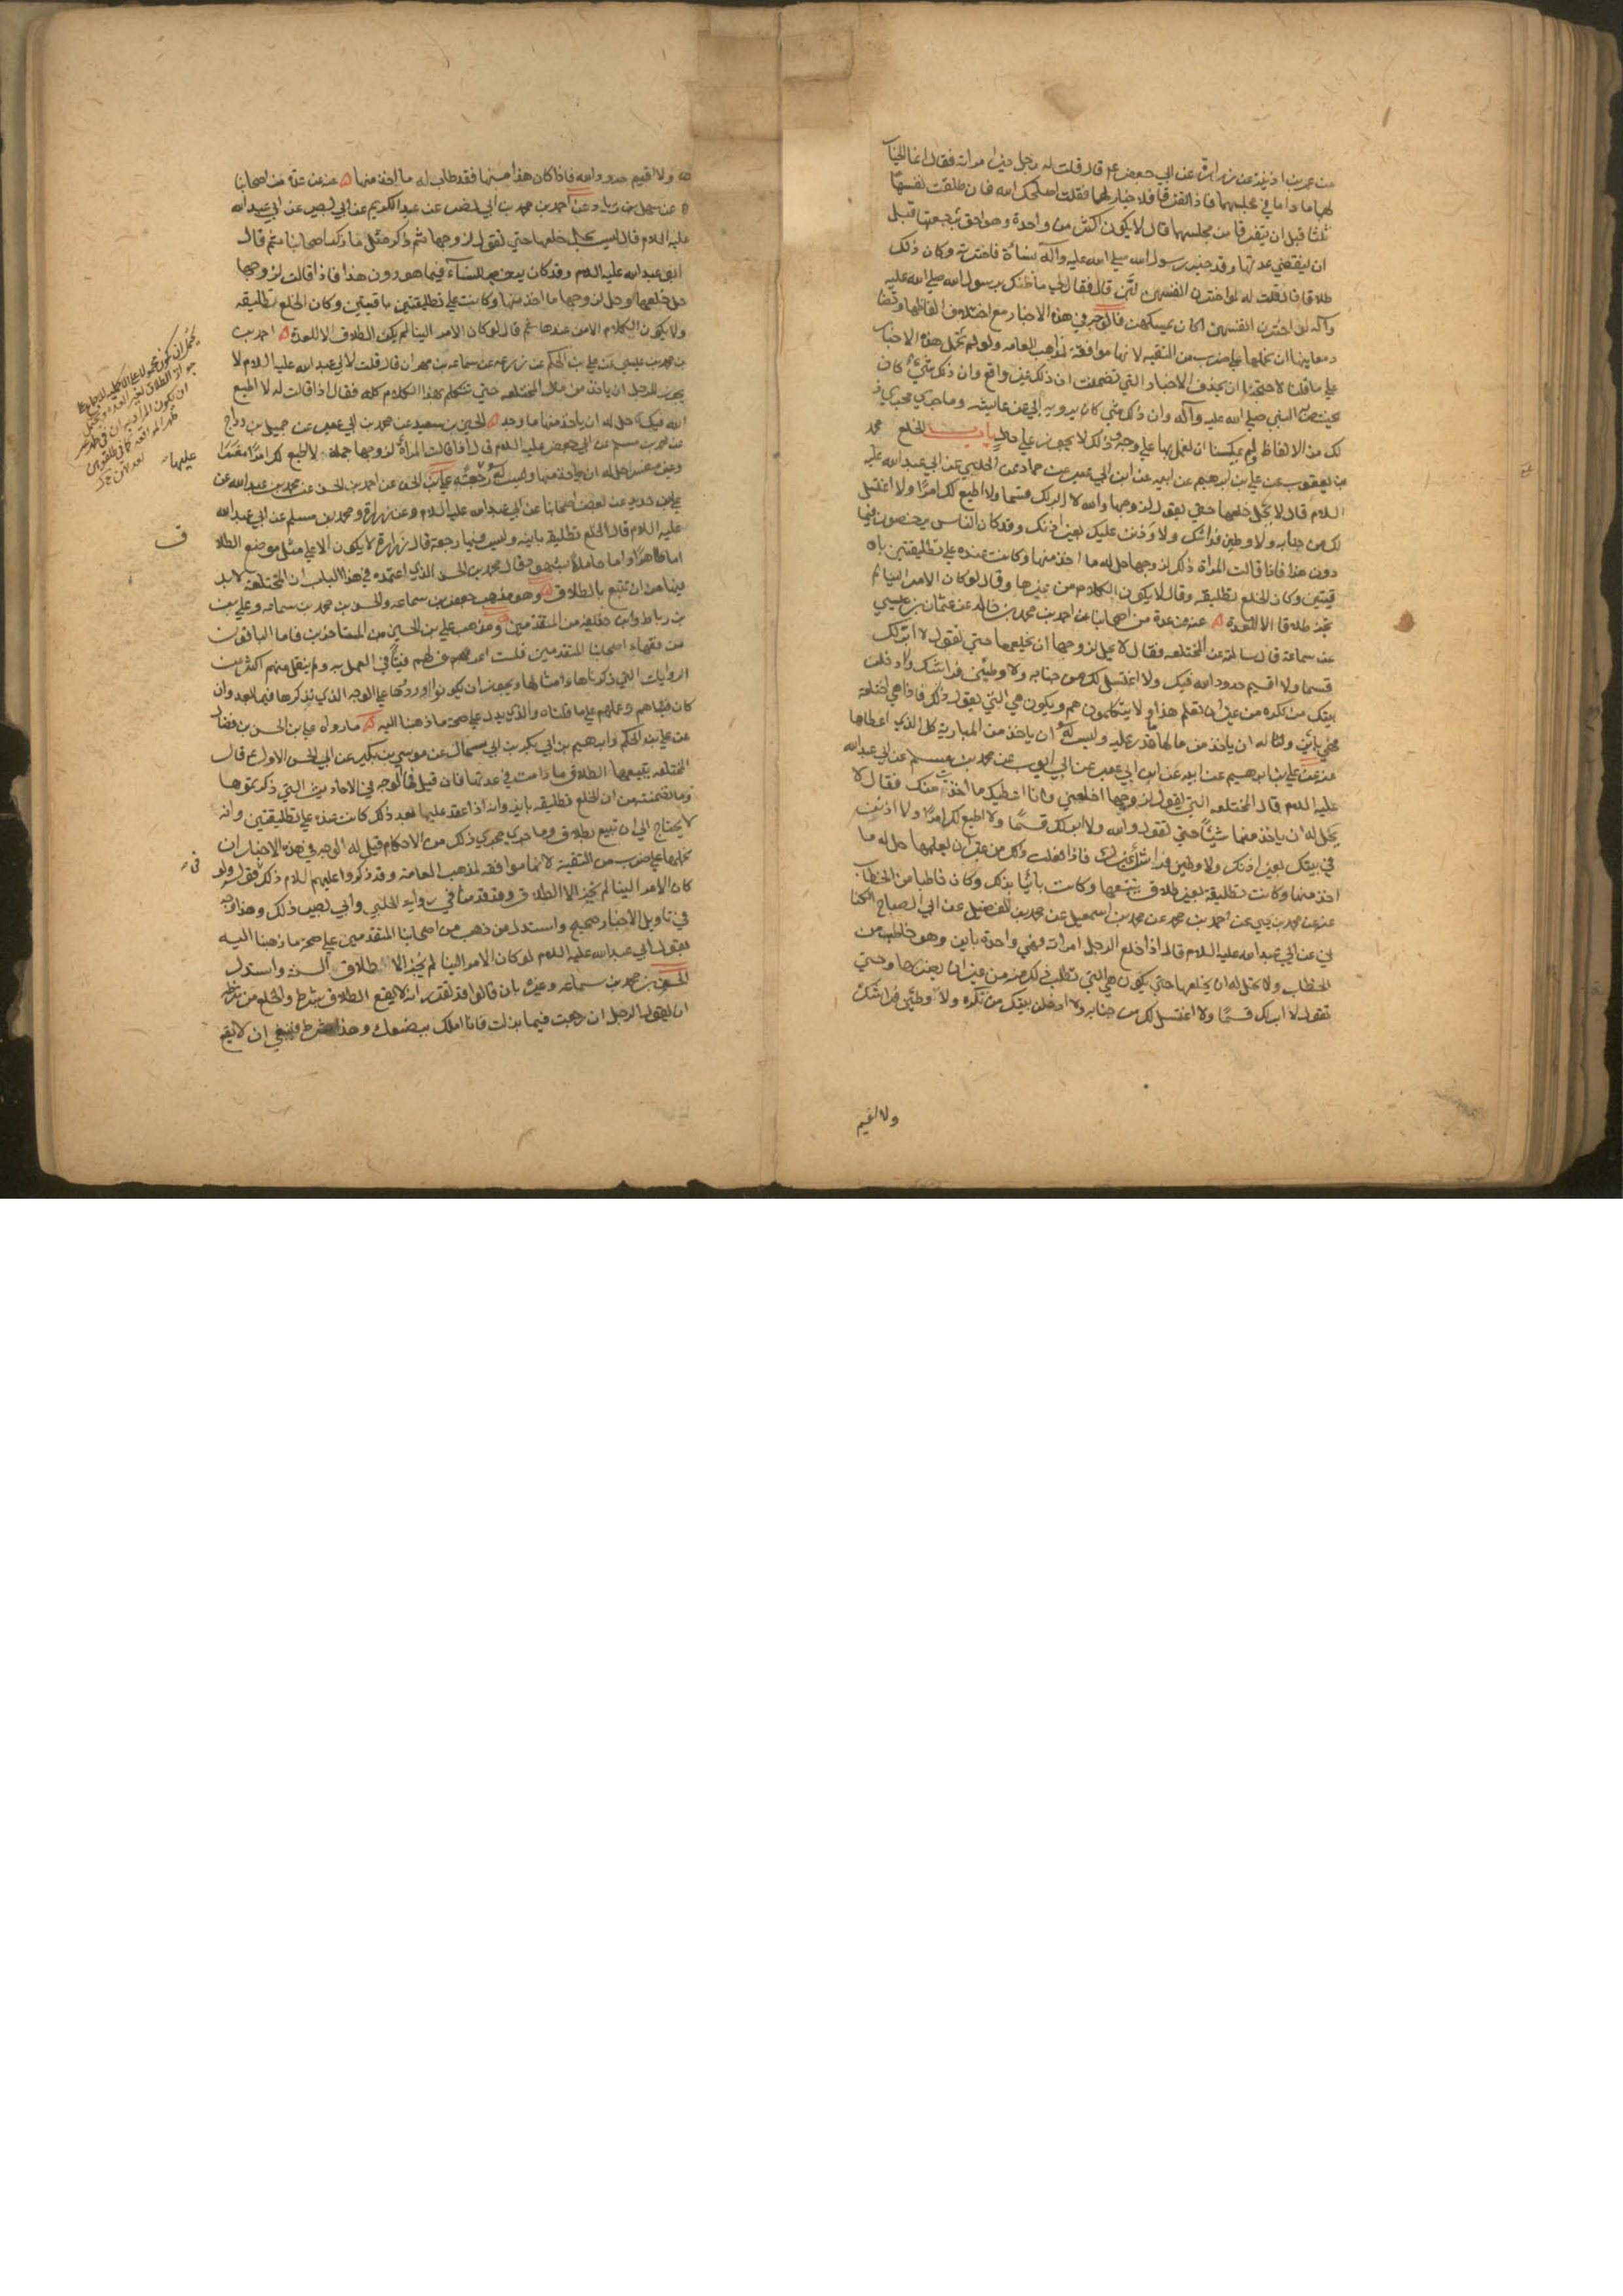 عن عمر بن اذينة عن زرارة عن ابي جعفر ع قال قلت له رجل خير امراته فقال انما الخيار
لهما ما داما في مجلسهما فاذا تفرقا فلا خيار لهما فقلت اصلحك الله فان طلقت نفسها
ثلثا قبل ان يتفرقا من مجلسهما قال لا يكون اكثر من واحدة وهو احق برجعتها قبل
ان تنقضي عدتها وقد خير رسول الله صلى الله عليه وآله نساءه فاخترنه وكان ذلك
طلاقا قال فقلت له لو اخترن انفسهن قال فقال لي ما ظنك برسول الله صلى الله عليه
وآله لو اخترن انفسهن اكان يمسكهن فالوجه في هذه الاخبار مع اختلاف الفاظها وتضاد
معانيها ان نحملها على ضرب من التقية لانها موافقة لمذاهب العامه ولو لم تحمل هذه الاخبار
على ما قلناه لاحتجنا ان نحذف الاخبار التي تضمنت ان ذلك غير واقع وان ذلك شيء كان
يختص النبي صلى الله عليه وآله وان ذلك شي كان يرويه ابي عن عايشه وما جرى مجرى ذ
لك من الالفاظ ولم يمكننا ان نعمل بها على وجه وذلك لا يجوز على حال باب الخلع محمد
بن يعقوب عن علي بن ابرهيم عن ابيه عن ابن ابي عمير عن حماد عن الحلبي عن ابي عبد الله عليه
السلام قال لا يحل خلعها حتى تقول لزوجها والله لا ابر لك قسما ولا اطيع لك امرا ولا اغتسل
لك من جنابه ولا وطين فراشك ولاوذنن عليك بغير اذنك وقد كان الناس يرخصون فيما
دون هذا فاذا قالت المراة ذلك لزوجها حل له ما اخذ منها وكانت عنده على تطليقتين با
قيتين وكان الخلع تطليقه وقال لا يكون الكلام من غيرها وقال لو كان الامر الينا لم
نجز طلاقا الا للعدة عنه عن عدة من اصحابنا عن احمد بن محمد بن خالد عن عثمان بن عيسى
عن سماعة قال سالته عن المختلعه فقال لا يحل لزوجها ان يخلعها حتى تقول لا ابر لك
قسما ولا اقيم حدود الله فيك ولا اغتسل لك من جنابه ولاوطين فراشك ولادخلن
بيتك من تكره من غير ان تعلم هذا ولا يتكلمون هم وتكون هي التي تقول ذلك فاذا هي اختلعت
فهي باين وله ان ياخذ من مالها ما قدر عليه وليس له ان ياخذ من المبارية كل الذي اعطاها
عنه عن علي بن ابرهيم عن ابيه عن ابن ابي عمير عن ابي ايوب عن محمد بن مسلم عن ابي عبد الله
عليه السلام قال المختلعه التي تقول لزوجها اخلعني وانا اعطيك ما اخذت منك فقال لا
يحل له ان ياخذ منها شيئا حتى تقول والله لا ابر لك قسما ولا اطيع لك امرا ولاذنن
في بيتك بغير اذنك ولاوطين فراشك غيرك فاذا فعلت ذلك من غير ان يعلمها حل له ما
اخذ منها وكانت تطليقة بغير طلاق يتبعها وكانت بائنا بذلك وكان خاطبا من الخطاب
عنه عن محمد بن يحيى عن احمد بن محمد عن محمد بن اسمعيل عن محمد بن الفضيل عن ابي الصباح الكنا
ني عن ابي عبد الله عليه السلام قال اذا خلع الرجل امراته فهي واحدة باين وهو خاطب من
الخطاب ولا يحل له ان يخلعها حتى تكون هي التي تطلب ذلك منه من غير ان يضربها وحتى
تقول لا ابر لك قسما ولا اغتسل لك من جنابه ولا دخلن بيتك من تكره ولاوطين فراشك
ولا اقيم
ولا اقيم حدود الله فاذا كان هذا منها فقد طاب له ما اخذ منها عنه عن عدة من اصحابنا
عن سهل بن زياد وعن احمد بن محمد بن ابي نصر عن عبد الكريم عن ابي بصير عن ابي عبد الله
عليه السلام قال ليس يحل خلعها حتى تقول لزوجها ثم ذكر مثل ما ذكر اصحابنا ثم قال
ابو عبد الله عليه السلام وقد كان يرخص للنساء فيما هو دون هذا فاذا قالت لزوجها
حل خلعها وحل لزوجها ما اخذ منها وكانت على تطليقتين باقيتين وكان الخلع تطليقه
ولا يكون الكلام الا من عندها ثم قال لو كان الامر الينا لم يكن الطلاق الا للعدة احمد بن
محمد بن عيسى عن علي بن الحكم عن زرعه عن سماعه بن مهران قال قلت لابي عبد الله عليه السلام لا
يجوز للرجل ان ياخذ من مال المختلعه حتى تتكلم بهذا الكلام كله فقال اذا قالت له لا اطيع
الله فيك حل له ان ياخذ منها ما وجد الحسين بن سعيد عن محمد بن ابي عمير عن جميل بن دراج
عن محمد بن مسلم عن ابي جعفر عليه السلام قال اذا قالت المرأة لزوجها جملة لا اطيع لك امرا مفسرا
وغير مفسر حل له ان ياخذ منها وليس له رجعته علي بن الحسن عن احمد بن الحسن عن محمد بن عبد الله عن
علي بن حديد عن بعض اصحابنا عن ابي عبد الله عليه السلام وعن زرارة ومحمد بن مسلم عن ابي عبد الله
عليه السلام قال الخلع تطليقه باينه وليس فيها رجعه قال زرارة لا يكون الا على مثل موضع الطلا
اما طاهرا واما حاملا بشهود قال محمد بن الحسن الذي اعتمده في هذا الباب ان المختلعه لا بد
فيها من ان تتبع بالطلاق وهو مذهب جعفر بن سماعه والحسن بن محمد بن سماعه وعلي
بن رباط وابن حذيفه من المتقدمين ومذهب علي بن الحسين من المتاخرين فاما الباقون
من فقهاء اصحابنا المتقدمين فلست اعرف لهم فتيا في العمل به ولم ينقل منهم اكثر من
الروايات التي ذكرناها وامثالها ويجوز ان يكونوا رووها على الوجه الذي نذكرها فيما بعد وان
كان فتياهم وعملهم على ما قلناه والذي يدل على صحة ما ذهبنا اليه ما رواه علي بن الحسن بن فضال
عن علي بن الحكم وابرهيم بن ابي بكر بن ابي سمال عن موسى بن بكير عن ابي الحسن الاول ع قال
المختلعه يتبعها الطلاق ما دامت في عدتها فان قيل فما الوجه في الاحاديث التي ذكرتموها
وما تضمنت من ان الخلع تطليقه باينه وانه اذا عقد عليها بعد ذلك كانت عنده على تطليقتين وانه
لا يحتاج الى ان تتبع بطلاق وما جرى مجرى ذلك من الاحكام قيل له الوجه في هذه الاخبار ان
نحملها على ضرب من التقية لانها موافقه لمذهب العامة وقد ذكروا عليهم السلام ذلك في قولهم ولو
كان الامر الينا لم نجز الا الطلاق وقد قدمنا في رواية الحلبي وابي بصير ذلك وهذا وجه
في تاويل الاخبار صحيح واستدل من ذهب من اصحابنا المتقدمين على صحة ما ذهبنا اليه
بقول ابي عبد الله عليه السلام لو كان الامر الينا لم نجز الا طلاق السنة واستدل
الحسن بن محمد بن سماعه وغيره بان قالوا قد تقرر انه لا يقع الطلاق بشرط والخلع من شرطه
ان يقول الرجل ان رجعت فيما بذلت فانا املك ببضعك وهذا شرط فينبغي ان لا يقع
عليها
ف